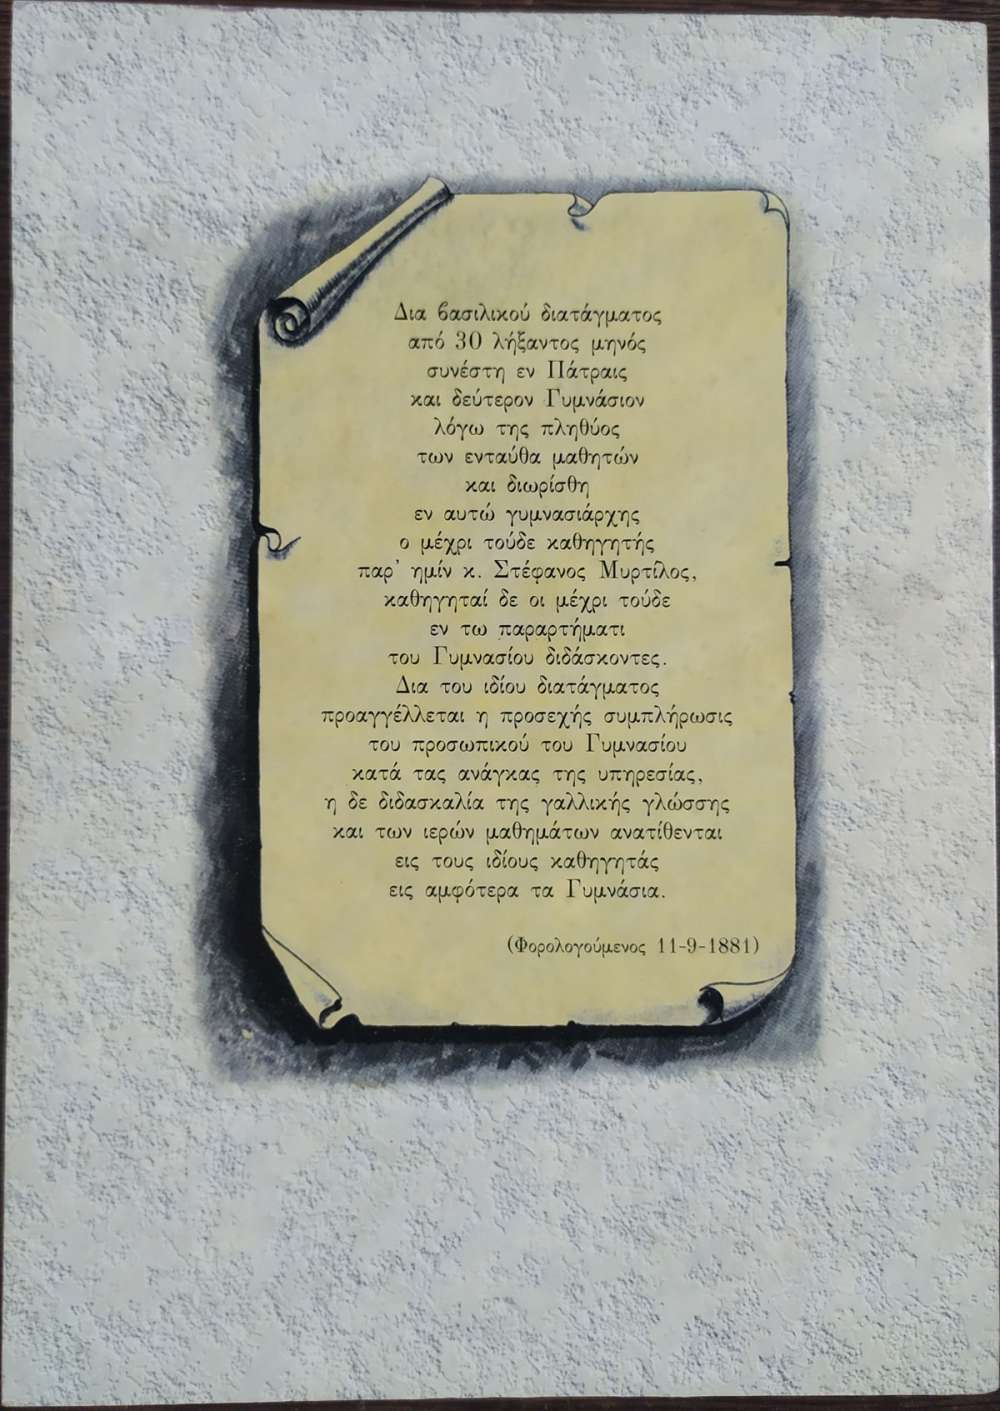 Δια βασιλικού διατάγματος
από 30 λήξαντος μηνός
συνέστη εν Πάτραις
και δεύτερον Γυμνάσιον
λόγω της πληθύος
των ενταύθα μαθητών
και διωρίσθη
εν αυτώ γυμνασιάρχης
ο μέχρι τούδε καθηγητής
παρ' ημίν κ. Στέφανος Μυρτίλος,
καθηγηταί δε οι μέχρι τούδε
εν τω παραρτήματι
του Γυμνασίου διδάσκοντες.
Δια του ιδίου διατάγματος
προαγγέλλεται η προσεχής συμπλήρωσις
του προσωπικού του Γυμνασίου
κατά τας ανάγκας της υπηρεσίας,
η δε διδασκαλία της γαλλικής γλώσσης
και των ιερών μαθημάτων ανατίθενται
εις τους ιδίους καθηγητάς
εις αμφότερα τα Γυμνάσια.
(Φορολογούμενος 11-9-1881)